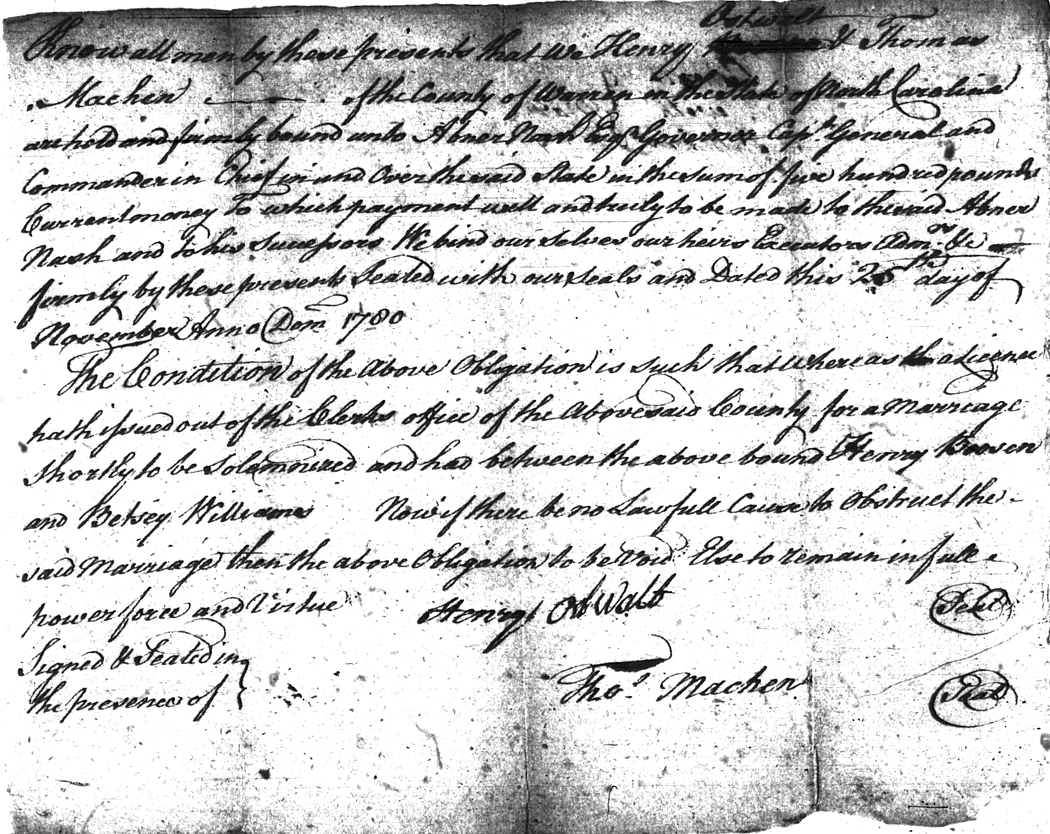 Ostwalt
Know all men by these presents that We Henry & Thomas
Machen of the County of Warren in the State of North Carolina
are hold and firmly bound unto Abner Nash Esqr Governor Capt. General and
Commander in Chief in and Over the said State in the sum of five hundred pounds
Current money To which payment well and truly to be made to the said Abner
Nash and to his Successors We bind our selves our heirs Executors Admrs &c
firmly by these presents Sealed with our seals and Dated this 25th day of
November Anno Dom 1780
The Condition of the Above Obligation is such that Whereas a licence
hath issued out of the Clerks office of the Abovesaid County for a Marriage
shortly to be Solemnized and had between the above bound Henry
and Betsey Williams Now if there be no Lawfull Cause to Obstruct the
said Marriage then the above Obligation to be Void Else to remain in full
power force and Virtue Henry Ostwalt Seal
Signed & Sealed in
the presence of Thos. Machen Seal